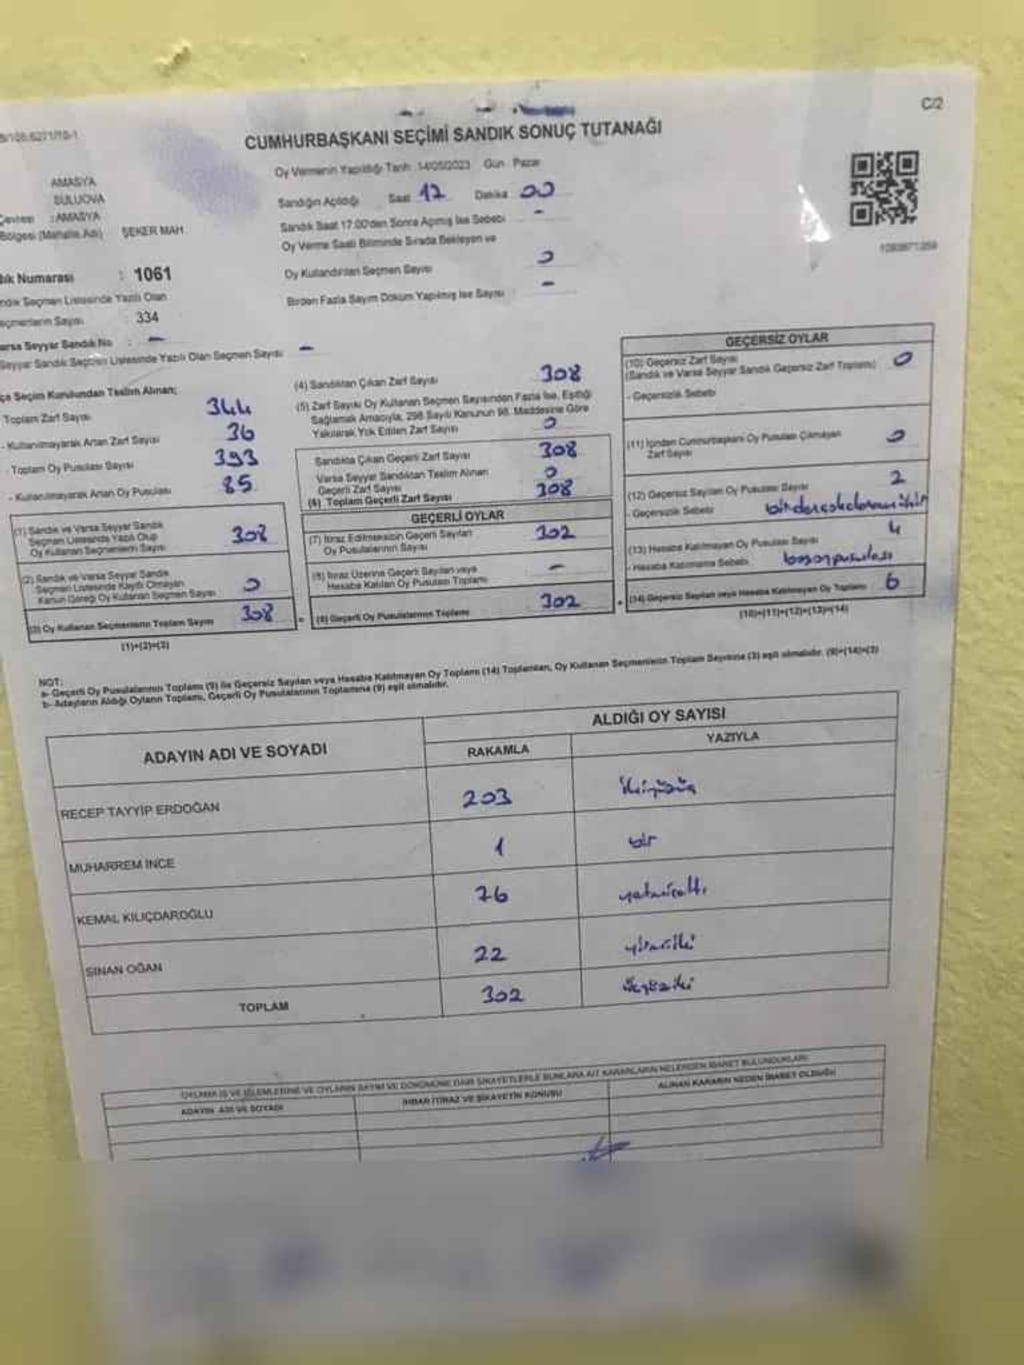 C/2
CUMHURBAŞKANI SEÇİMİ SANDIK SONUÇ TUTANAĞI
Oy Vermenin Yapıldığı Tarih: 14/05/2023 Gün: Pazar
AMASYA
SULUOVA
Çevresi : AMASYA
Bölgesi (Mahalle Adı) ŞEKER MAH
Sandığın Açıldığı Saat 17 Dakika 00
Sandık Saat 17.00'den Sonra Açılmış İse Sebebi -
Oy Verme Saati Bitiminde Sırada Bekleyen ve
Oy Kullandırılan Seçmen Sayısı 0
Birden Fazla Sayım Döküm Yapılmış İse Sayısı -
Numarası : 1061
Seçmen Listesinde Yazılı Olan
Seçmenlerin Sayısı : 334
Varsa Seyyar Sandık No : -
Seyyar Sandık Seçmen Listesinde Yazılı Olan Seçmen Sayısı -
İlçe Seçim Kurulundan Teslim Alınan;
- Toplam Zarf Sayısı 344
- Kullanılmayarak Artan Zarf Sayısı 36
- Toplam Oy Pusulası Sayısı 393
- Kullanılmayarak Artan Oy Pusulası 85
(1) Sandık ve Varsa Seyyar Sandık
Seçmen Listesinde Yazılı Olup
Oy Kullanan Seçmenlerin Sayısı 308
(2) Sandık ve Varsa Seyyar Sandık
Seçmen Listesinde Kayıtlı Olmayan
Kanun Gereği Oy Kullanan Seçmen Sayısı 0
(3) Oy Kullanan Seçmenlerin Toplam Sayısı 308
(1)+(2)=(3)
(4) Sandıktan Çıkan Zarf Sayısı 308
(5) Zarf Sayısı Oy Kullanan Seçmen Sayısından Fazla İse, Eşitliği
Sağlamak Amacıyla, 298 Sayılı Kanunun 98. Maddesine Göre
Yakılarak Yok Edilen Zarf Sayısı 0
Sandıkta Çıkan Geçerli Zarf Sayısı 308
Varsa Seyyar Sandıktan Teslim Alınan
Geçerli Zarf Sayısı 0
(6) Toplam Geçerli Zarf Sayısı 308
GEÇERLİ OYLAR
(7) İtiraz Edilmeksizin Geçerli Sayılan
Oy Pusulalarının Sayısı 302
(8) İtiraz Üzerine Geçerli Sayılan veya
Hesaba Katılan Oy Pusulası Toplamı -
(9) Geçerli Oy Pusulalarının Toplamı 302
GEÇERSİZ OYLAR
(10) Geçersiz Zarf Sayısı
(Sandık ve Varsa Seyyar Sandık Geçersiz Zarf Toplamı) 0
- Geçersizlik Sebebi
(11) İçinden Cumhurbaşkanı Oy Pusulası Çıkmayan
Zarf Sayısı 0
(12) Geçersiz Sayılan Oy Pusulası Sayısı 2
- Geçersizlik Sebebi
(13) Hesaba Katılmayan Oy Pusulası Sayısı 4
- Hesaba Katılmama Sebebi
(14) Geçersiz Sayılan veya Hesaba Katılmayan Oy Toplamı 6
(10)+(11)+(12)+(13)=(14)
NOT:
a- Geçerli Oy Pusulalarının Toplamı (9) ile Geçersiz Sayılan veya Hesaba Katılmayan Oy Toplamı (14) Toplamları, Oy Kullanan Seçmenlerin Toplam Sayısına (3) eşit olmalıdır. (9)+(14)=(3)
b- Adayların Aldığı Oyların Toplamı, Geçerli Oy Pusulalarının Toplamına (9) eşit olmalıdır.
ADAYIN ADI VE SOYADI ALDIĞI OY SAYISI
RAKAMLA YAZIYLA
RECEP TAYYİP ERDOĞAN 203 ikiyüzüç
MUHARREM İNCE 1 bir
KEMAL KILIÇDAROĞLU 76 yetmişaltı
SİNAN OĞAN 22 yirmiiki
TOPLAM 302 üçyüziki
OYLAMA İŞ VE İŞLEMLERİNE VE OYLARIN SAYIM VE DÖKÜMÜNE DAİR ŞİKAYETLERLE BUNLARA AİT KARARLARIN NELERDEN İBARET BULUNDUKLARI
ADAYIN ADI VE SOYADI İHBAR İTİRAZ VE ŞİKAYETİN KONUSU ALINAN KARARIN NEDEN İBARET OLDUĞU